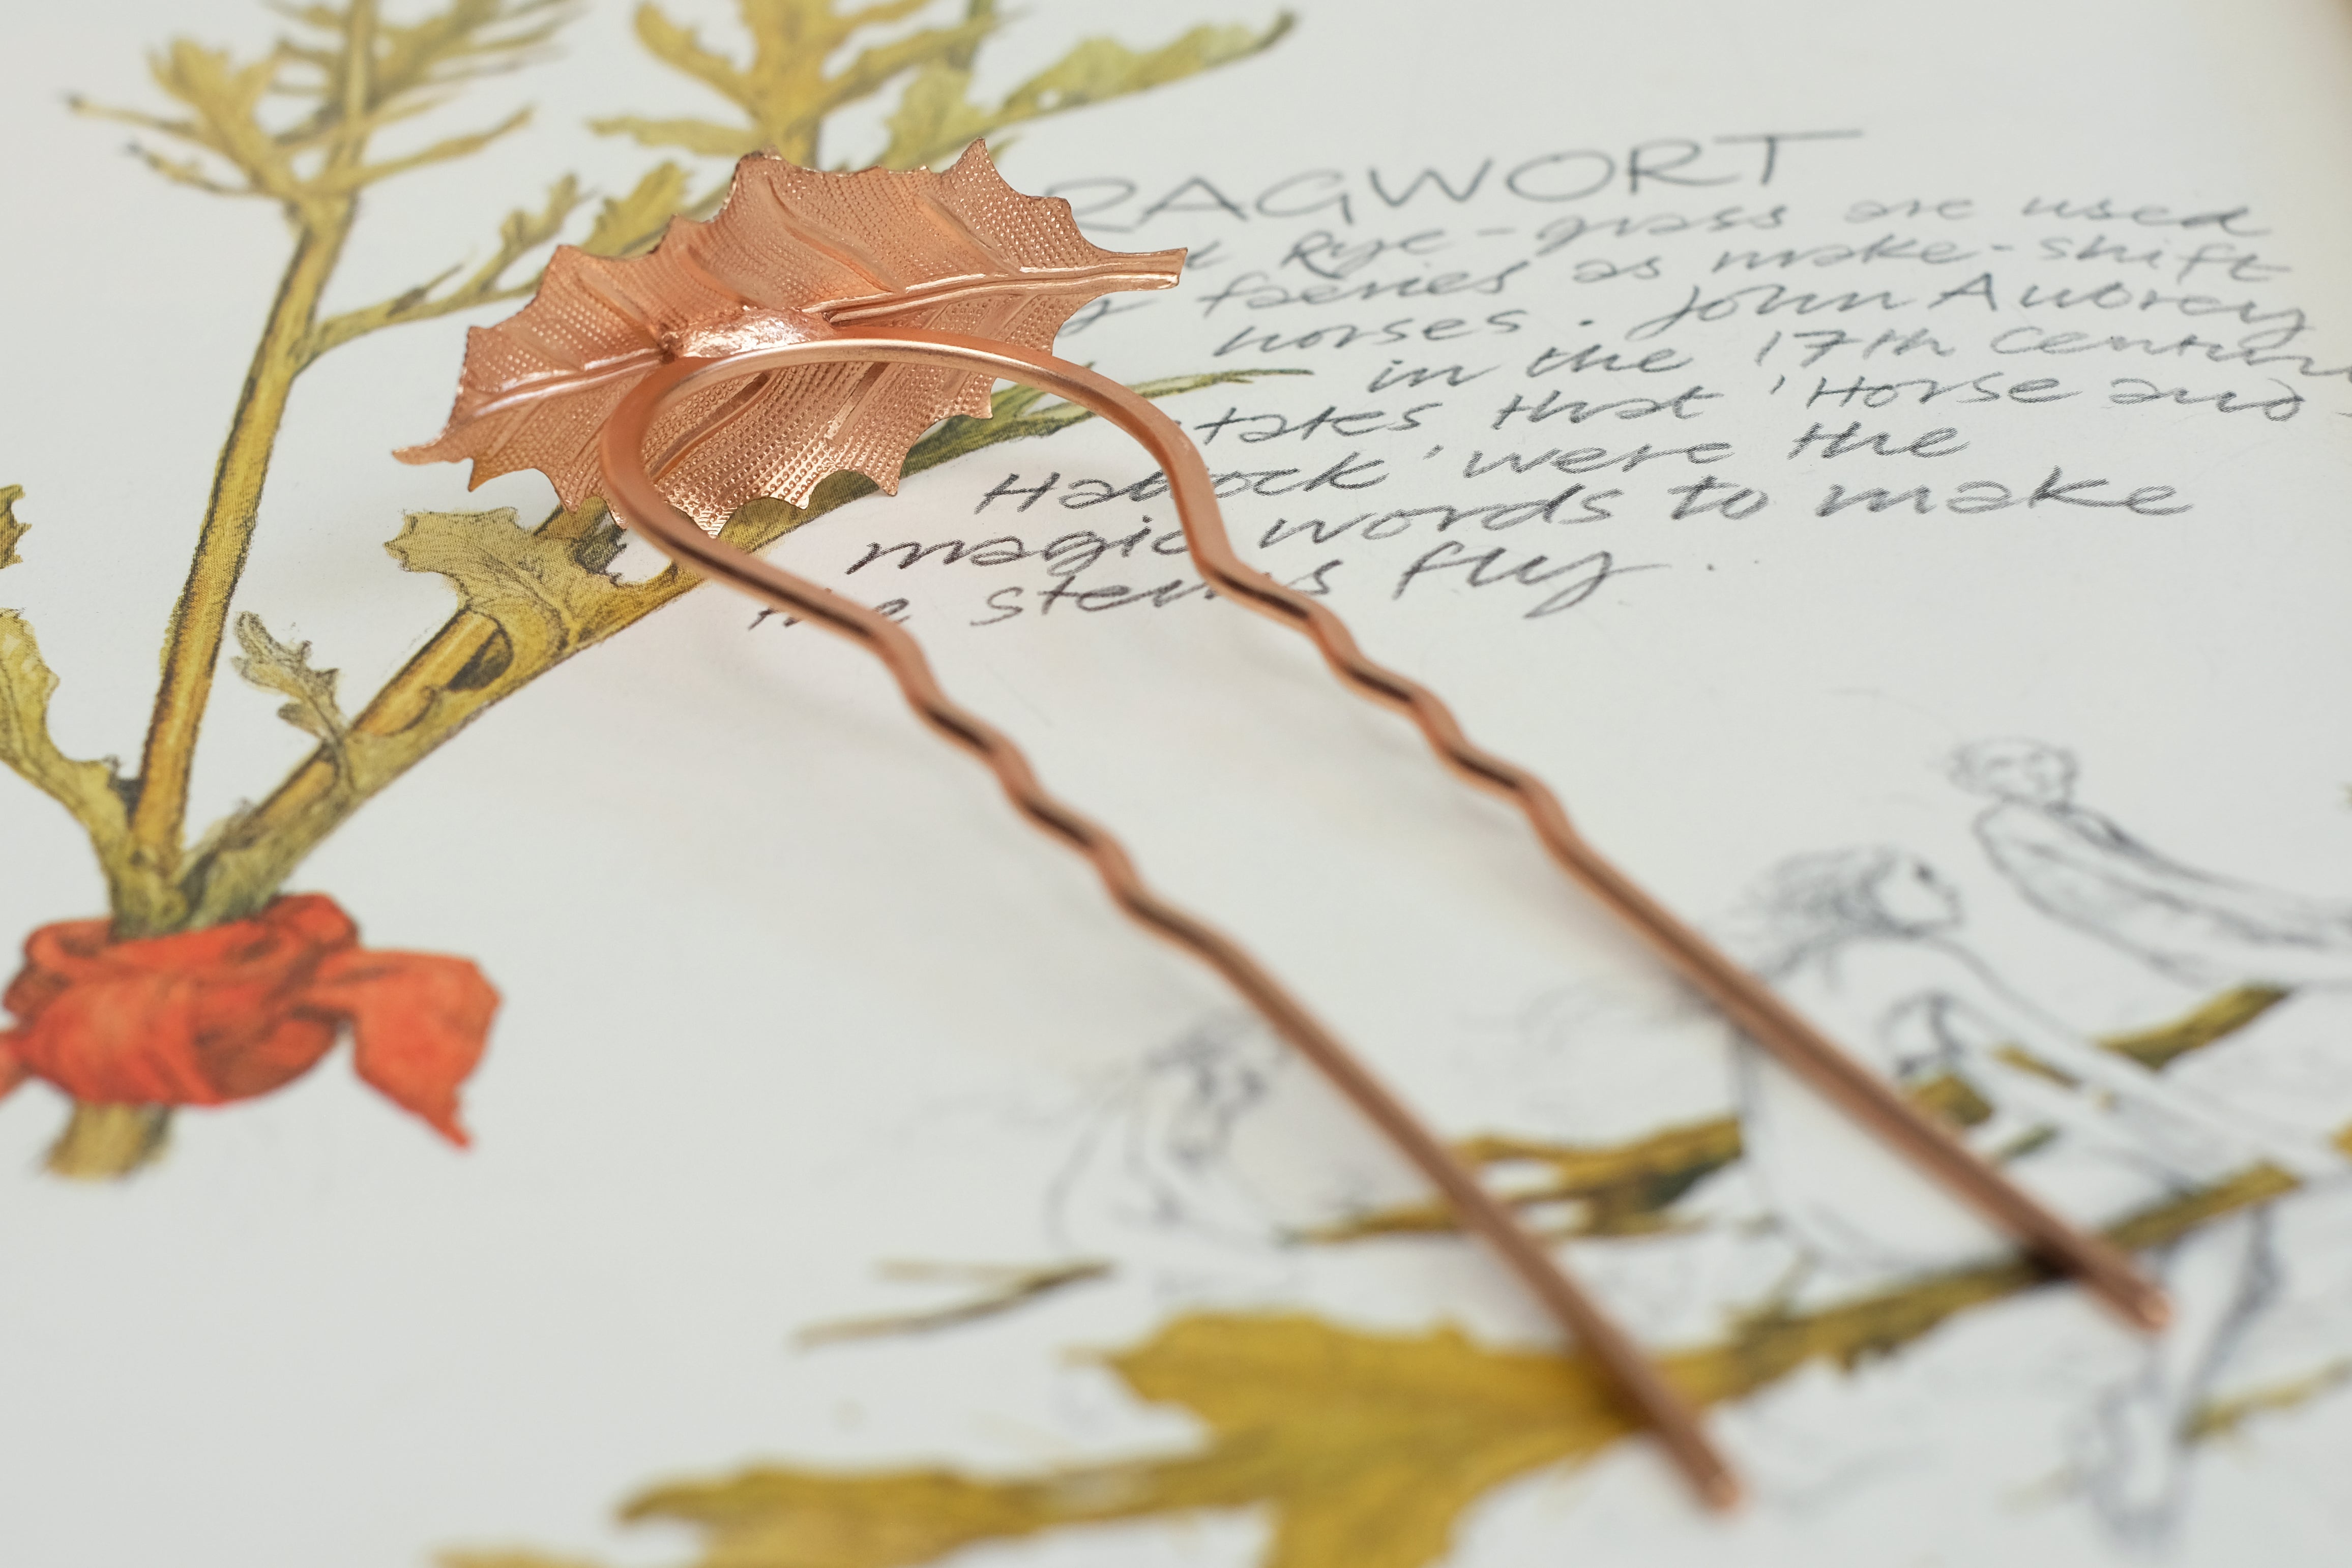 RAGWORT
Rye-grass are used
faeries as make-shift
horses. John Aubrey
in the 17th Centur
tates that 'Horse and
Hattock' were the
magic words to make
the stems fly.